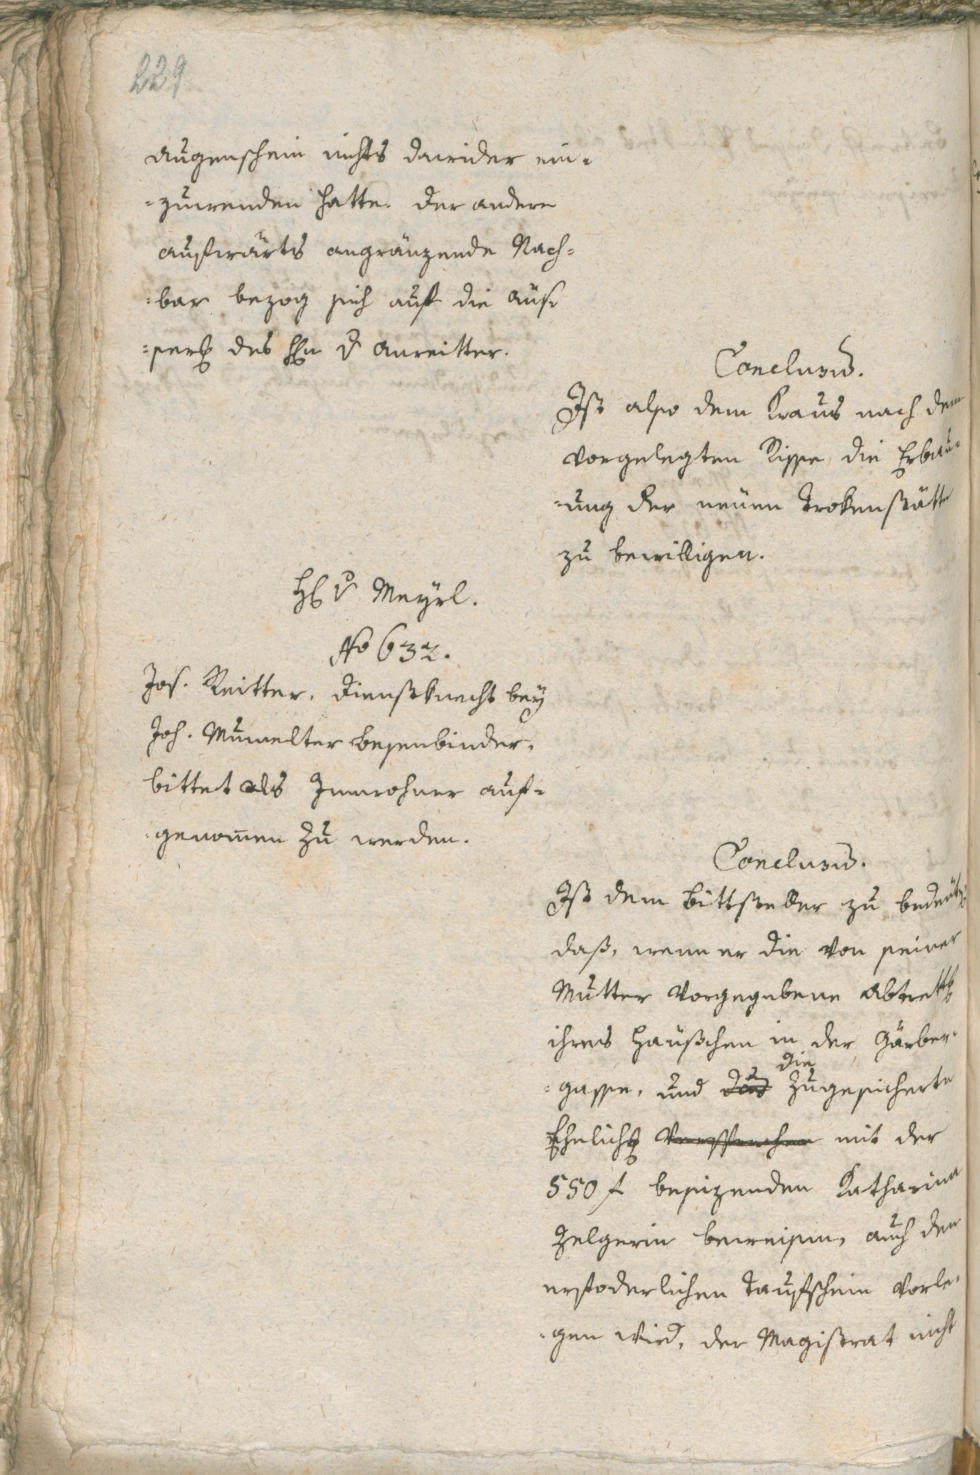 229
Augenschein nichts darwider ein-
-zuwenden hatte. Der andere
aufwärts angränzende Nach-
-bar bezog sich auf die Aüß
-serg des Hn v Anreitter.
Conclusum.
Ist also dem Kraus nach dem
vorgelegten Risse die Erbau-
-ung der neuen Trokenstätte
zu bewilligen.
H v Mayrl.
No 632.
Jos. Reitter, Dienstknecht bey
Joh. Mumelter Besenbinder,
bittet als Innwohner auf-
-genommen zu werden.
Conclusum.
Ist dem Bittsteller zu bedeuten
daß, wenn er die von seiner
Mutter vorgegebene Abtrettg
ihres Haüßchen in der Gärber-
die
-gasse, und das zugesicherte
Ehelichg Versprechen mit der
550 f besizenden Katharina
Zelgerin beweisen, auch den
erfoderlichen Taufschein vorle-
-gen wird, der Magistrat nicht